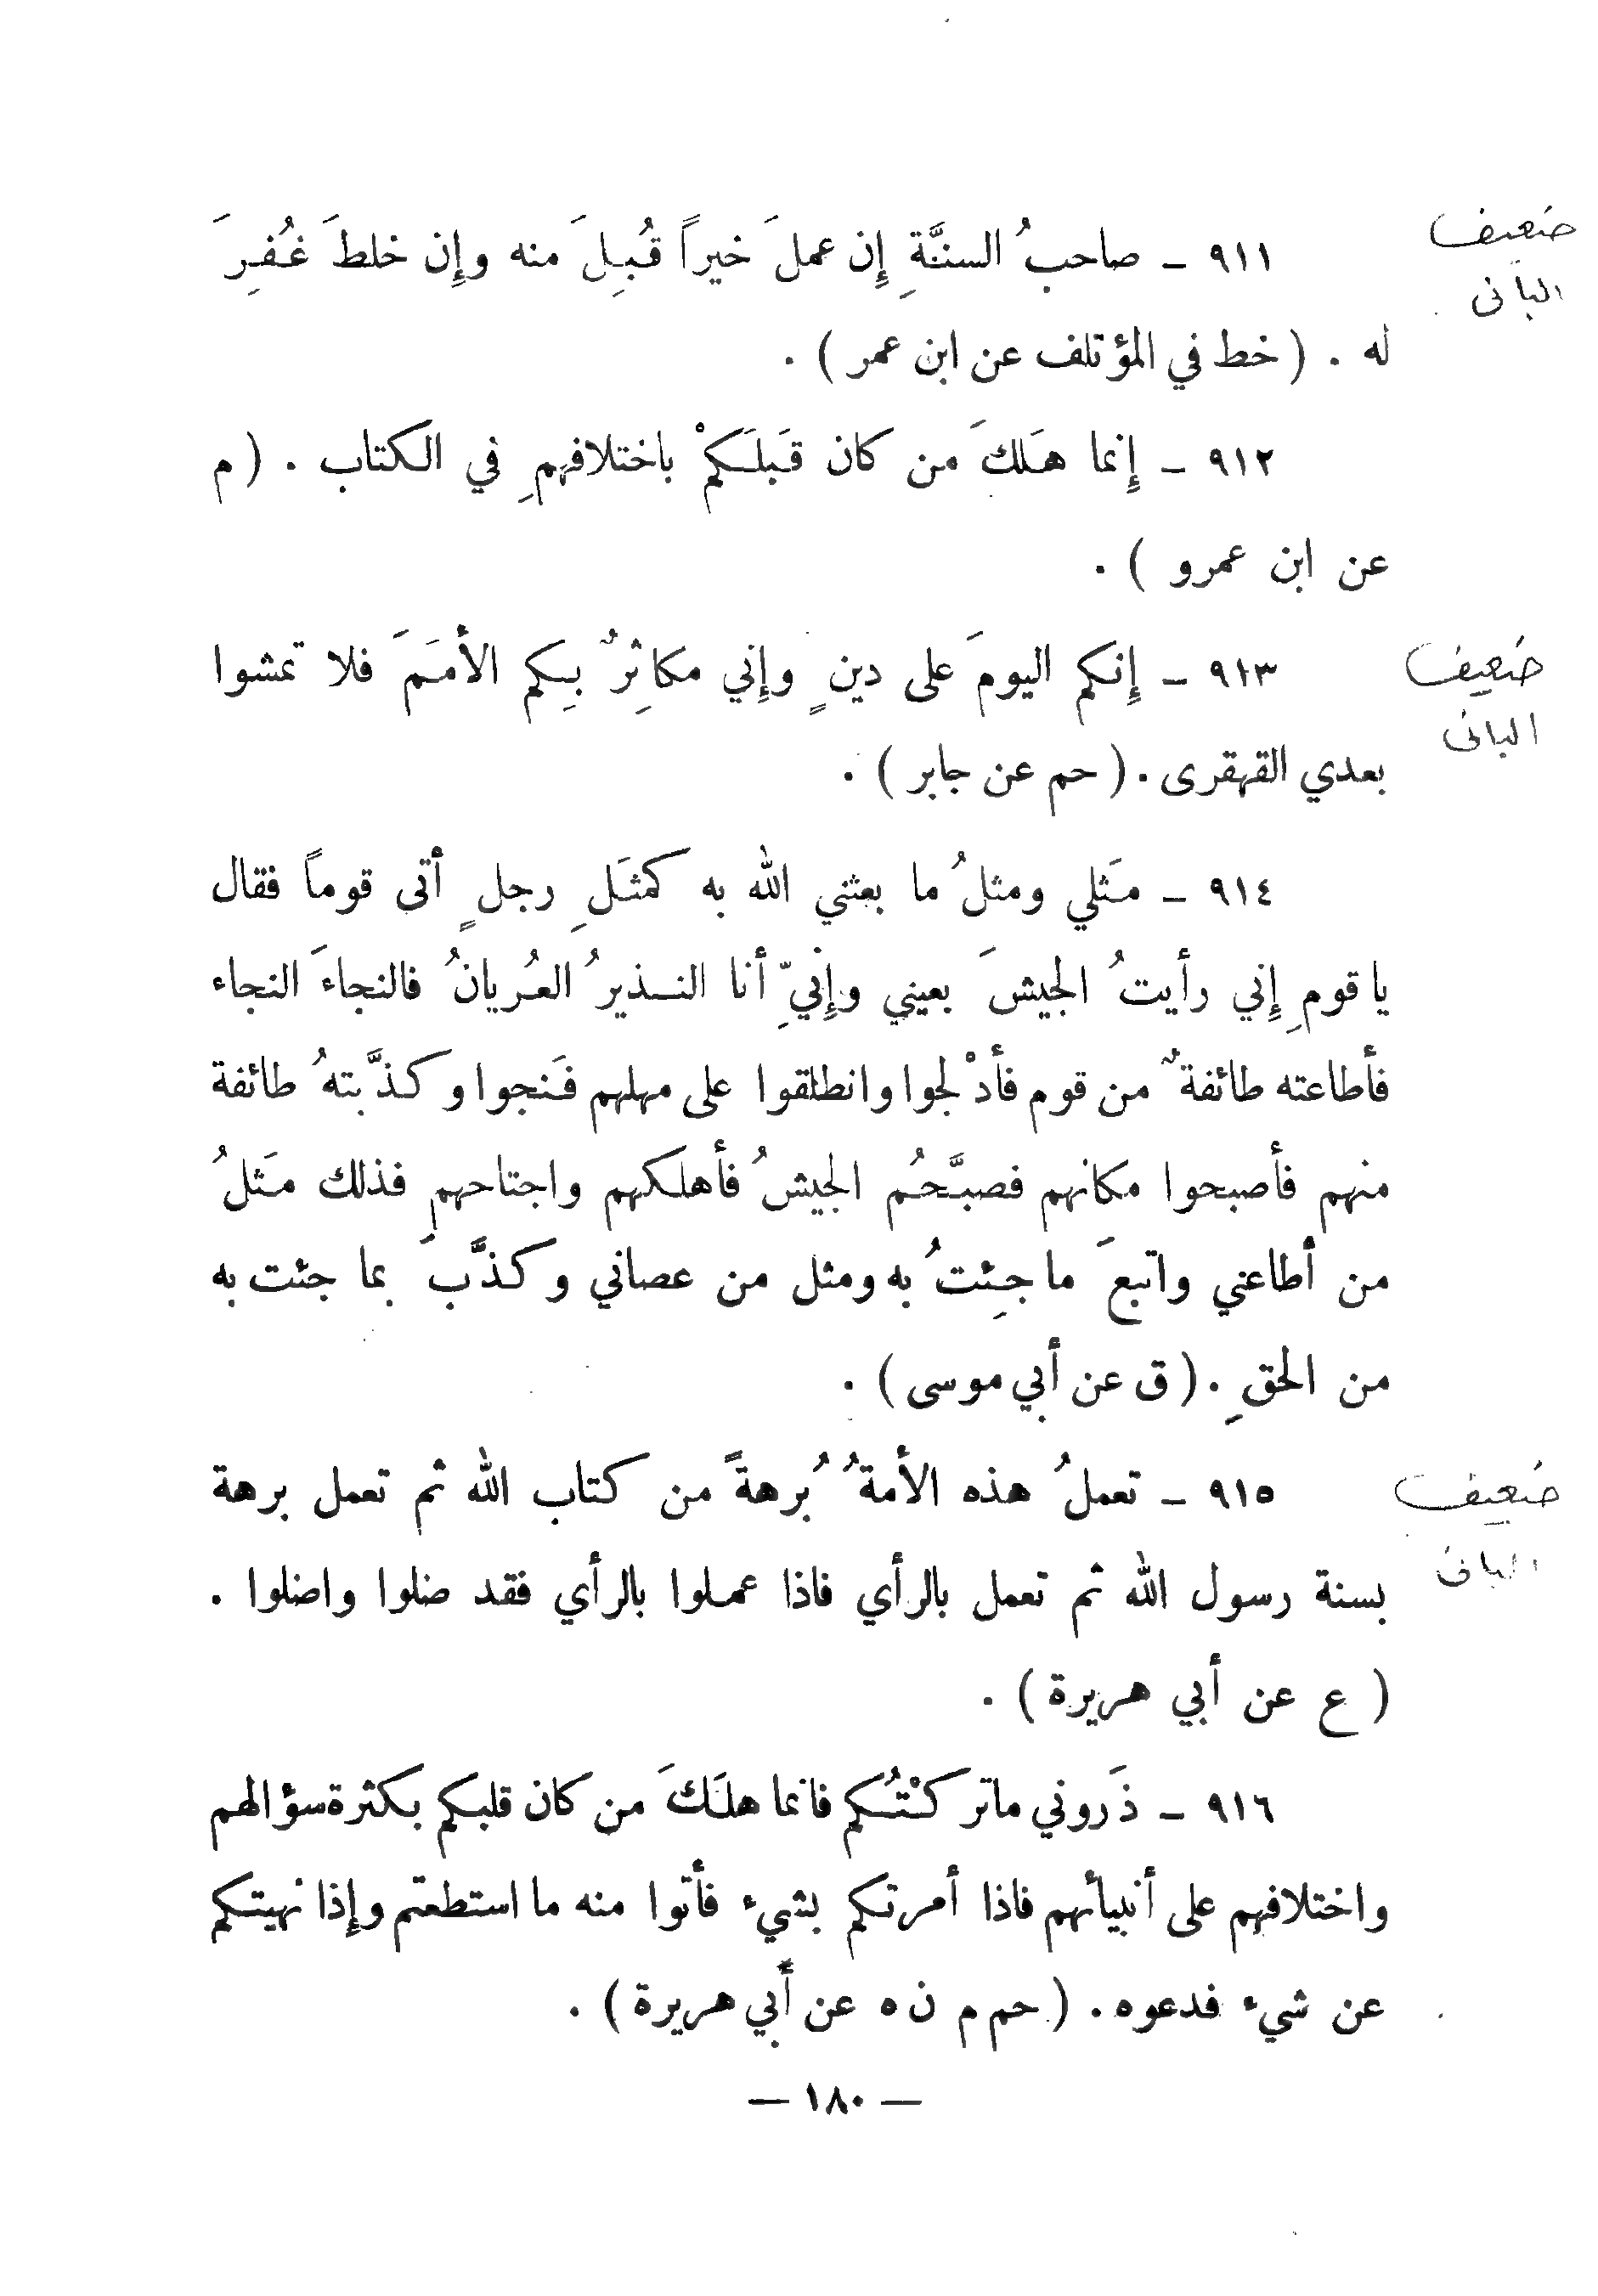 ضعيف
البانى
٩١١ - صاحبُ السنَّةِ إِن عملَ خيراً قُبِلَ منه وإِن خلطَ غُفِرَ
له . ( خط في المؤتلف عن ابن عمر ) .
٩١٢ - إِنما هَلكَ من كان قَبلَكمْ باختلافهمِ في الكتاب . ( م
عن ابن عمرو ) .
ضعيف
البانى
٩١٣ - إِنكم اليومَ على دينٍ وإِني مكاثِرٌ بِكم الأممَ فلا تمشوا
بعدي القهقرى . ( حم عن جابر ) .
٩١٤ - مَثلي ومثلُ ما بعثني الله به كمثَلِ رجلٍ أتى قوماً فقال
يا قومِ إِني رأيتُ الجيشَ بعيني وإِنيِّ أنا النـذيرُ العُريانُ فالنجاءَ النجاء
فأطاعته طائفةٌ من قوم فأدْلجوا وانطلقوا على مهلهم فَنجوا وكذَّبتهُ طائفة
منهم فأصبحوا مكانهم فصبَّحُم الجيشُ فأهلكهم واجتاحهم فذلك مَثلُ
من أطاعني واتبعَ ما جِئتُ به ومثل من عصاني وكذَّبَ بما جئت به
من الحقِ . ( ق عن أبي موسى ) .
ضعيف
البانى
٩١٥ - تعملُ هذه الأمةُ بُرهةً من كتاب الله ثم تعمل برهة
بسنة رسول الله ثم تعمل بالرأي فاذا عملوا بالرأي فقد ضلوا واضلوا .
( ع عن أبي هريرة ) .
٩١٦ - ذَروني ماتركْتُكم فانما هلَكَ من كان قلبكم بكثرة سؤالهم
واختلافهم على أنبيائهم فاذا أمرتكم بشيء فأتوا منه ما استطعتم وإِذا نهيتكم
عن شيء فدعوه . ( حم م ن ه عن أبي هريرة ) .
— ١٨٠ —